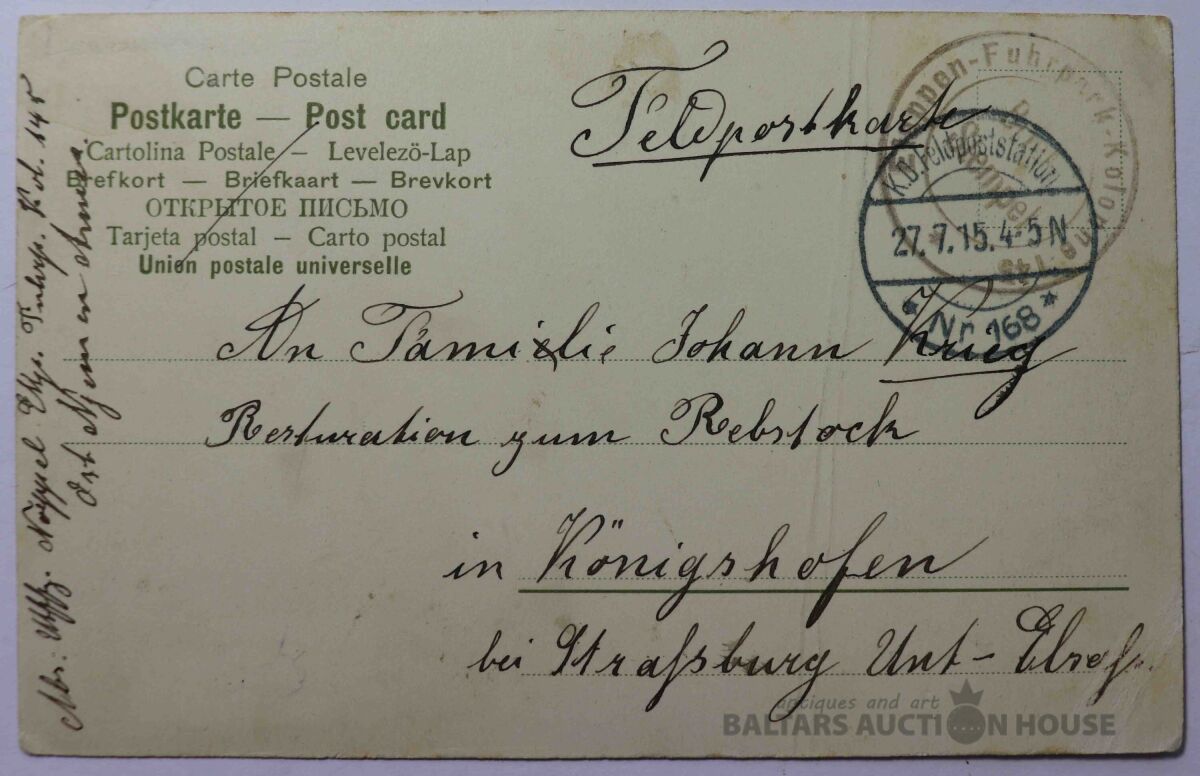 Carte Postale
Postkarte — Post card
Cartolina Postale – Levelezö-Lap
Brefkort – Briefkaart – Brevkort
ОТКРЫТОЕ ПИСЬМО
Tarjeta postal – Carto postal
Union postale universelle
Feldpostkarte
Fuhrpark-Kolonne 145
K.D. Feldpoststation
27.7.15. 4-5 N
* Nr. 168 *
An Familie Johann Krieg
Resturation zum Rebstock
in Königshofen
bei Straßburg Unt-Elsaß.
Abs: Noppel Fuhrp. Kol. 145
Armee
antiques and art
BALTARS AUCTION HOUSE